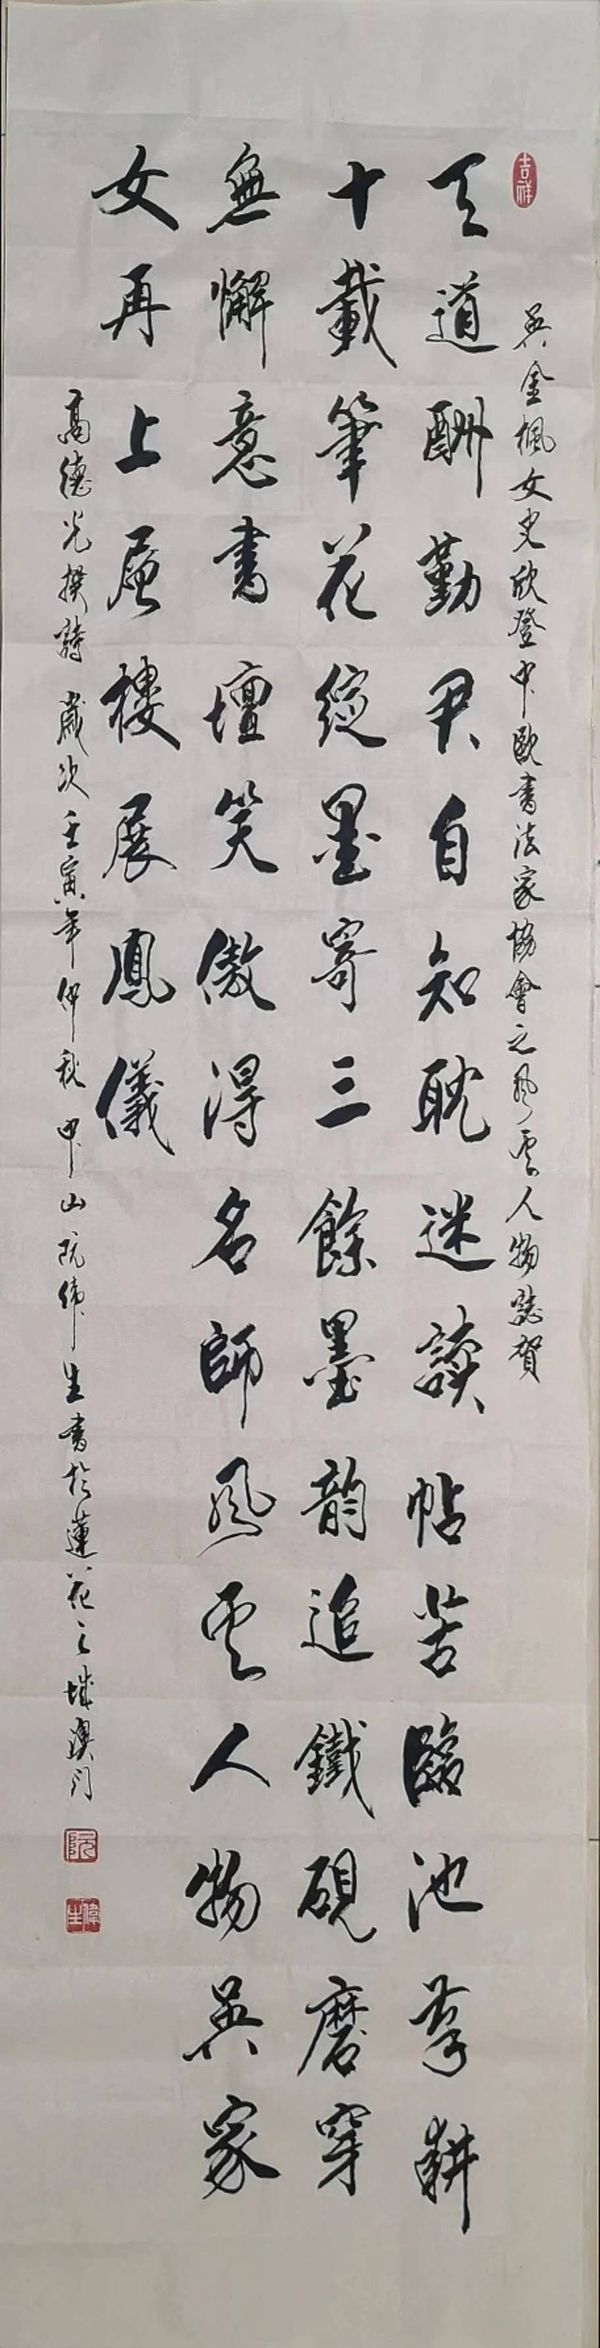 吉祥
吳金楓女史欣登中歐書法家協會之風雲人物誌賀
天道酬勤君自知耽迷讀帖苦臨池摹耕
十載筆花綻墨寄三餘墨韻追鐵硯磨穿
無懈意書壇笑傲得名師風雲人物吳家
女再上層樓展鳳儀
高德光撰詩 歲次壬寅年仲秋 中山阮偉生書於蓮花之城澳门
阮
偉生